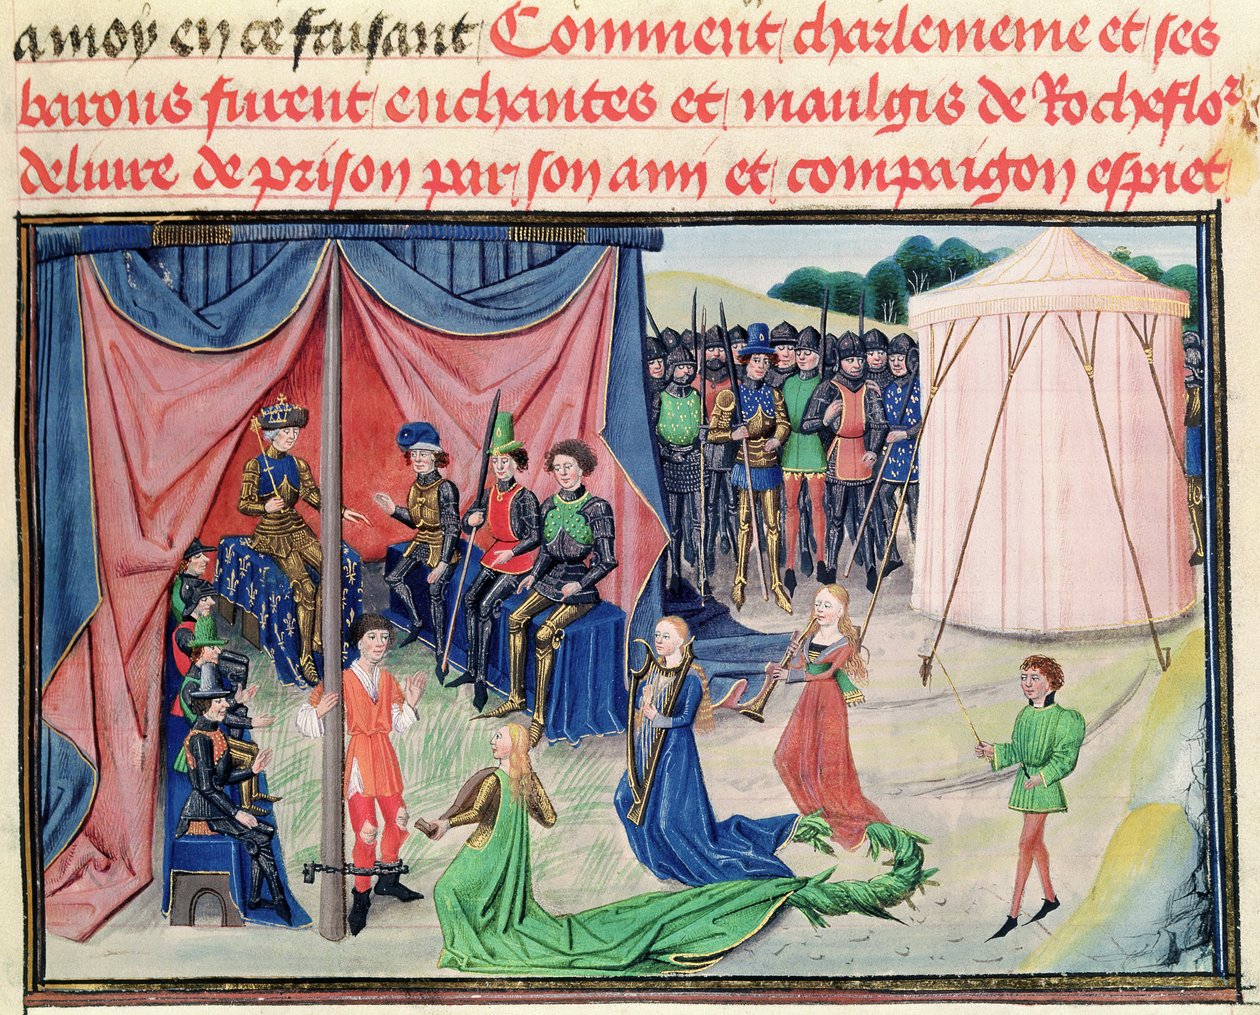 amoy en ce faisant Comment charlemeine et ses
barons furent enchantes et maulgis de Rocheflor
deliure de prison par son ami et compaignon espiet